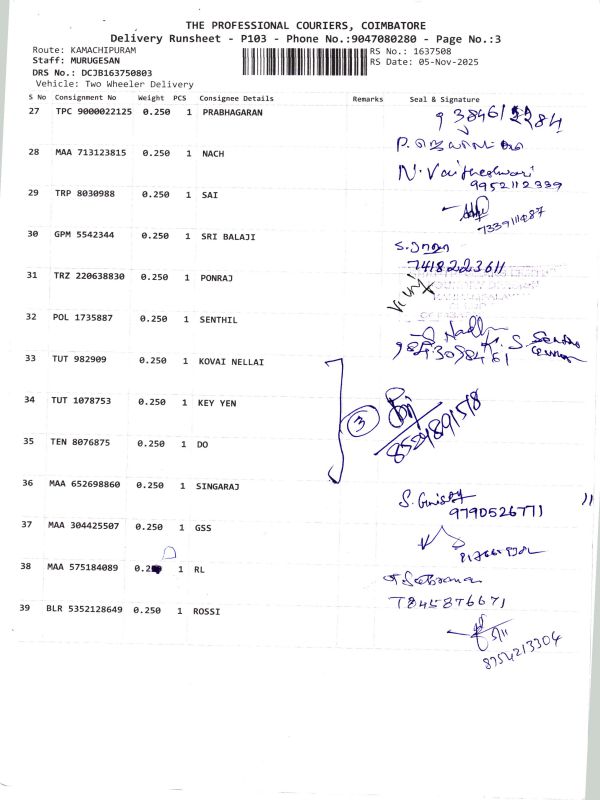 THE PROFESSIONAL COURIERS, COIMBATORE
Delivery Runsheet - P103 - Phone No.:9047080280 - Page No.:3
Route: KAMACHIPURAM
RS No.: 1637508
Staff: MURUGESAN
RS Date: 05-Nov-2025
DRS No.: DCJB163750803
Vehicle: Two Wheeler Delivery
S No Consignment No Weight PCS Consignee Details Remarks Seal & Signature
27 TPC 9000022125 0.250 1 PRABHAGARAN
28 MAA 713123815 0.250 1 NACH
N. Vaitheshwari
9952112339
29 TRP 8030988 0.250 1 SAI
30 GPM 5542344 0.250 1 SRI BALAJI
7418223611
31 TRZ 220638830 0.250 1 PONRAJ
32 POL 1735887 0.250 1 SENTHIL
33 TUT 982909 0.250 1 KOVAI NELLAI
34 TUT 1078753 0.250 1 KEY YEN
3
35 TEN 8076875 0.250 1 DO
36 MAA 652698860 0.250 1 SINGARAJ
9790526771
37 MAA 304425507 0.250 1 GSS
38 MAA 575184089 1 RL
7845876671
39 BLR 5352128649 0.250 1 ROSSI
5/11
8754213304